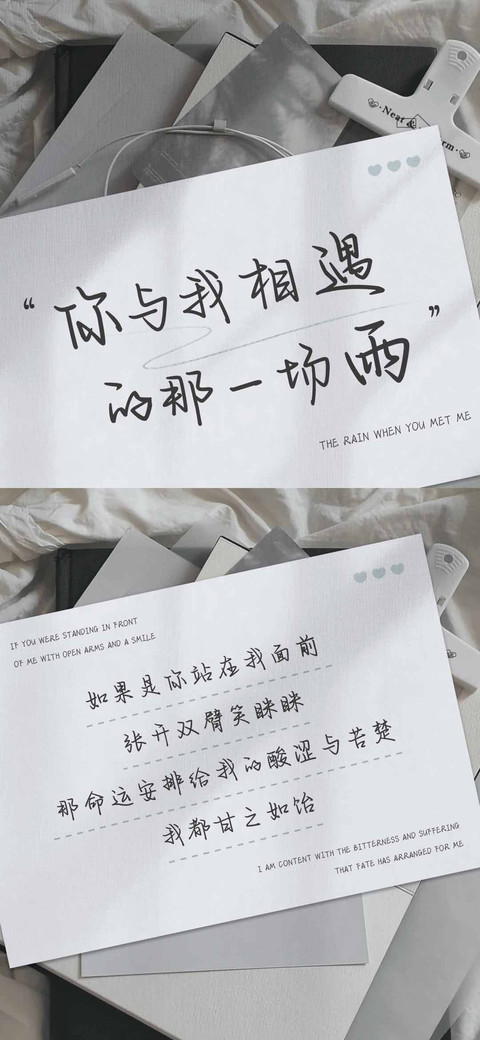 Neat & 
“你与我相遇
的那一场雨”
THE RAIN WHEN YOU MET ME
IF YOU WERE STANDING IN FRONT
OF ME WITH OPEN ARMS AND A SMILE
如果是你站在我面前
张开双臂笑眯眯
那命运安排给我的酸涩与苦楚
我都甘之如饴
I AM CONTENT WITH THE BITTERNESS AND SUFFERING
THAT FATE HAS ARRANGED FOR ME